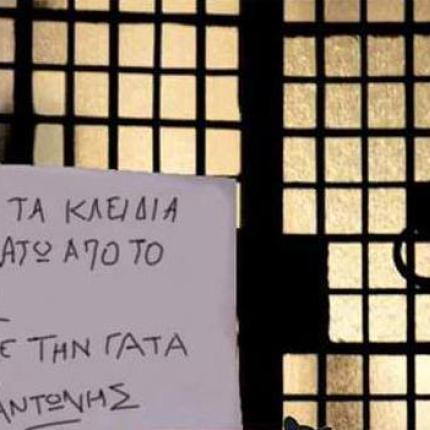 ΤΑ ΚΛΕΙΔΙΑ
ΑΤΩ ΑΠΟ ΤΟ
Ε ΤΗΝ ΓΑΤΑ
ΑΝΤΩΝΗΣ